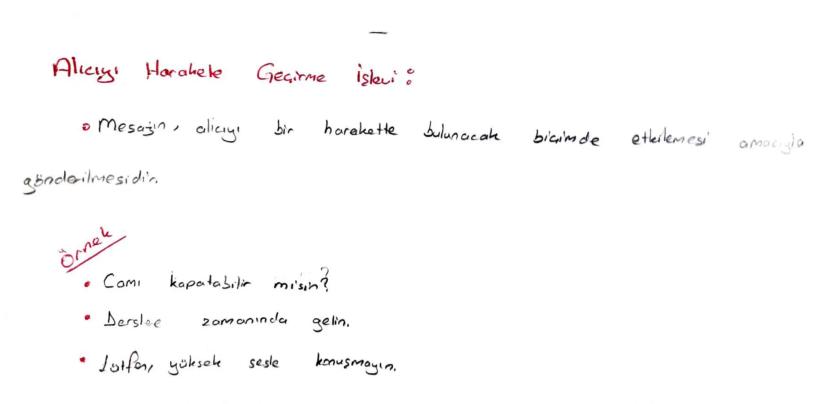 Alıcıyı Harekete Geçirme İşlevi:
• Mesajın, alıcıyı bir harekette bulunacak biçimde etkilemesi amacıyla
gönderilmesidir.
Örnek
• Camı kapatabilir misin?
• Derslere zamanında gelin.
• Lütfen, yüksek sesle konuşmayın.